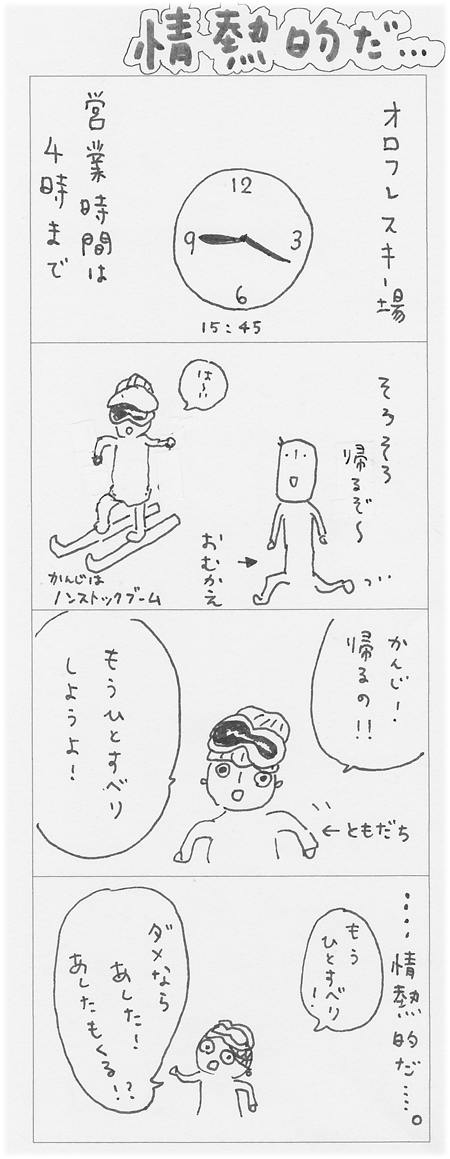 情熱的だ…
オロフレスキー場
12
3
6
9
15:45
営業時間は
4時まで
そろそろ
帰るぞ〜
おむかえ
は〜い
かんじは
ノンストックブーム
かんじ!
帰るの!!
←ともだち
もうひとすべり
しようよ!
‥‥情熱的だ‥‥。
もう
ひとすべり!
ダメなら
あした!
あしたもくる!?